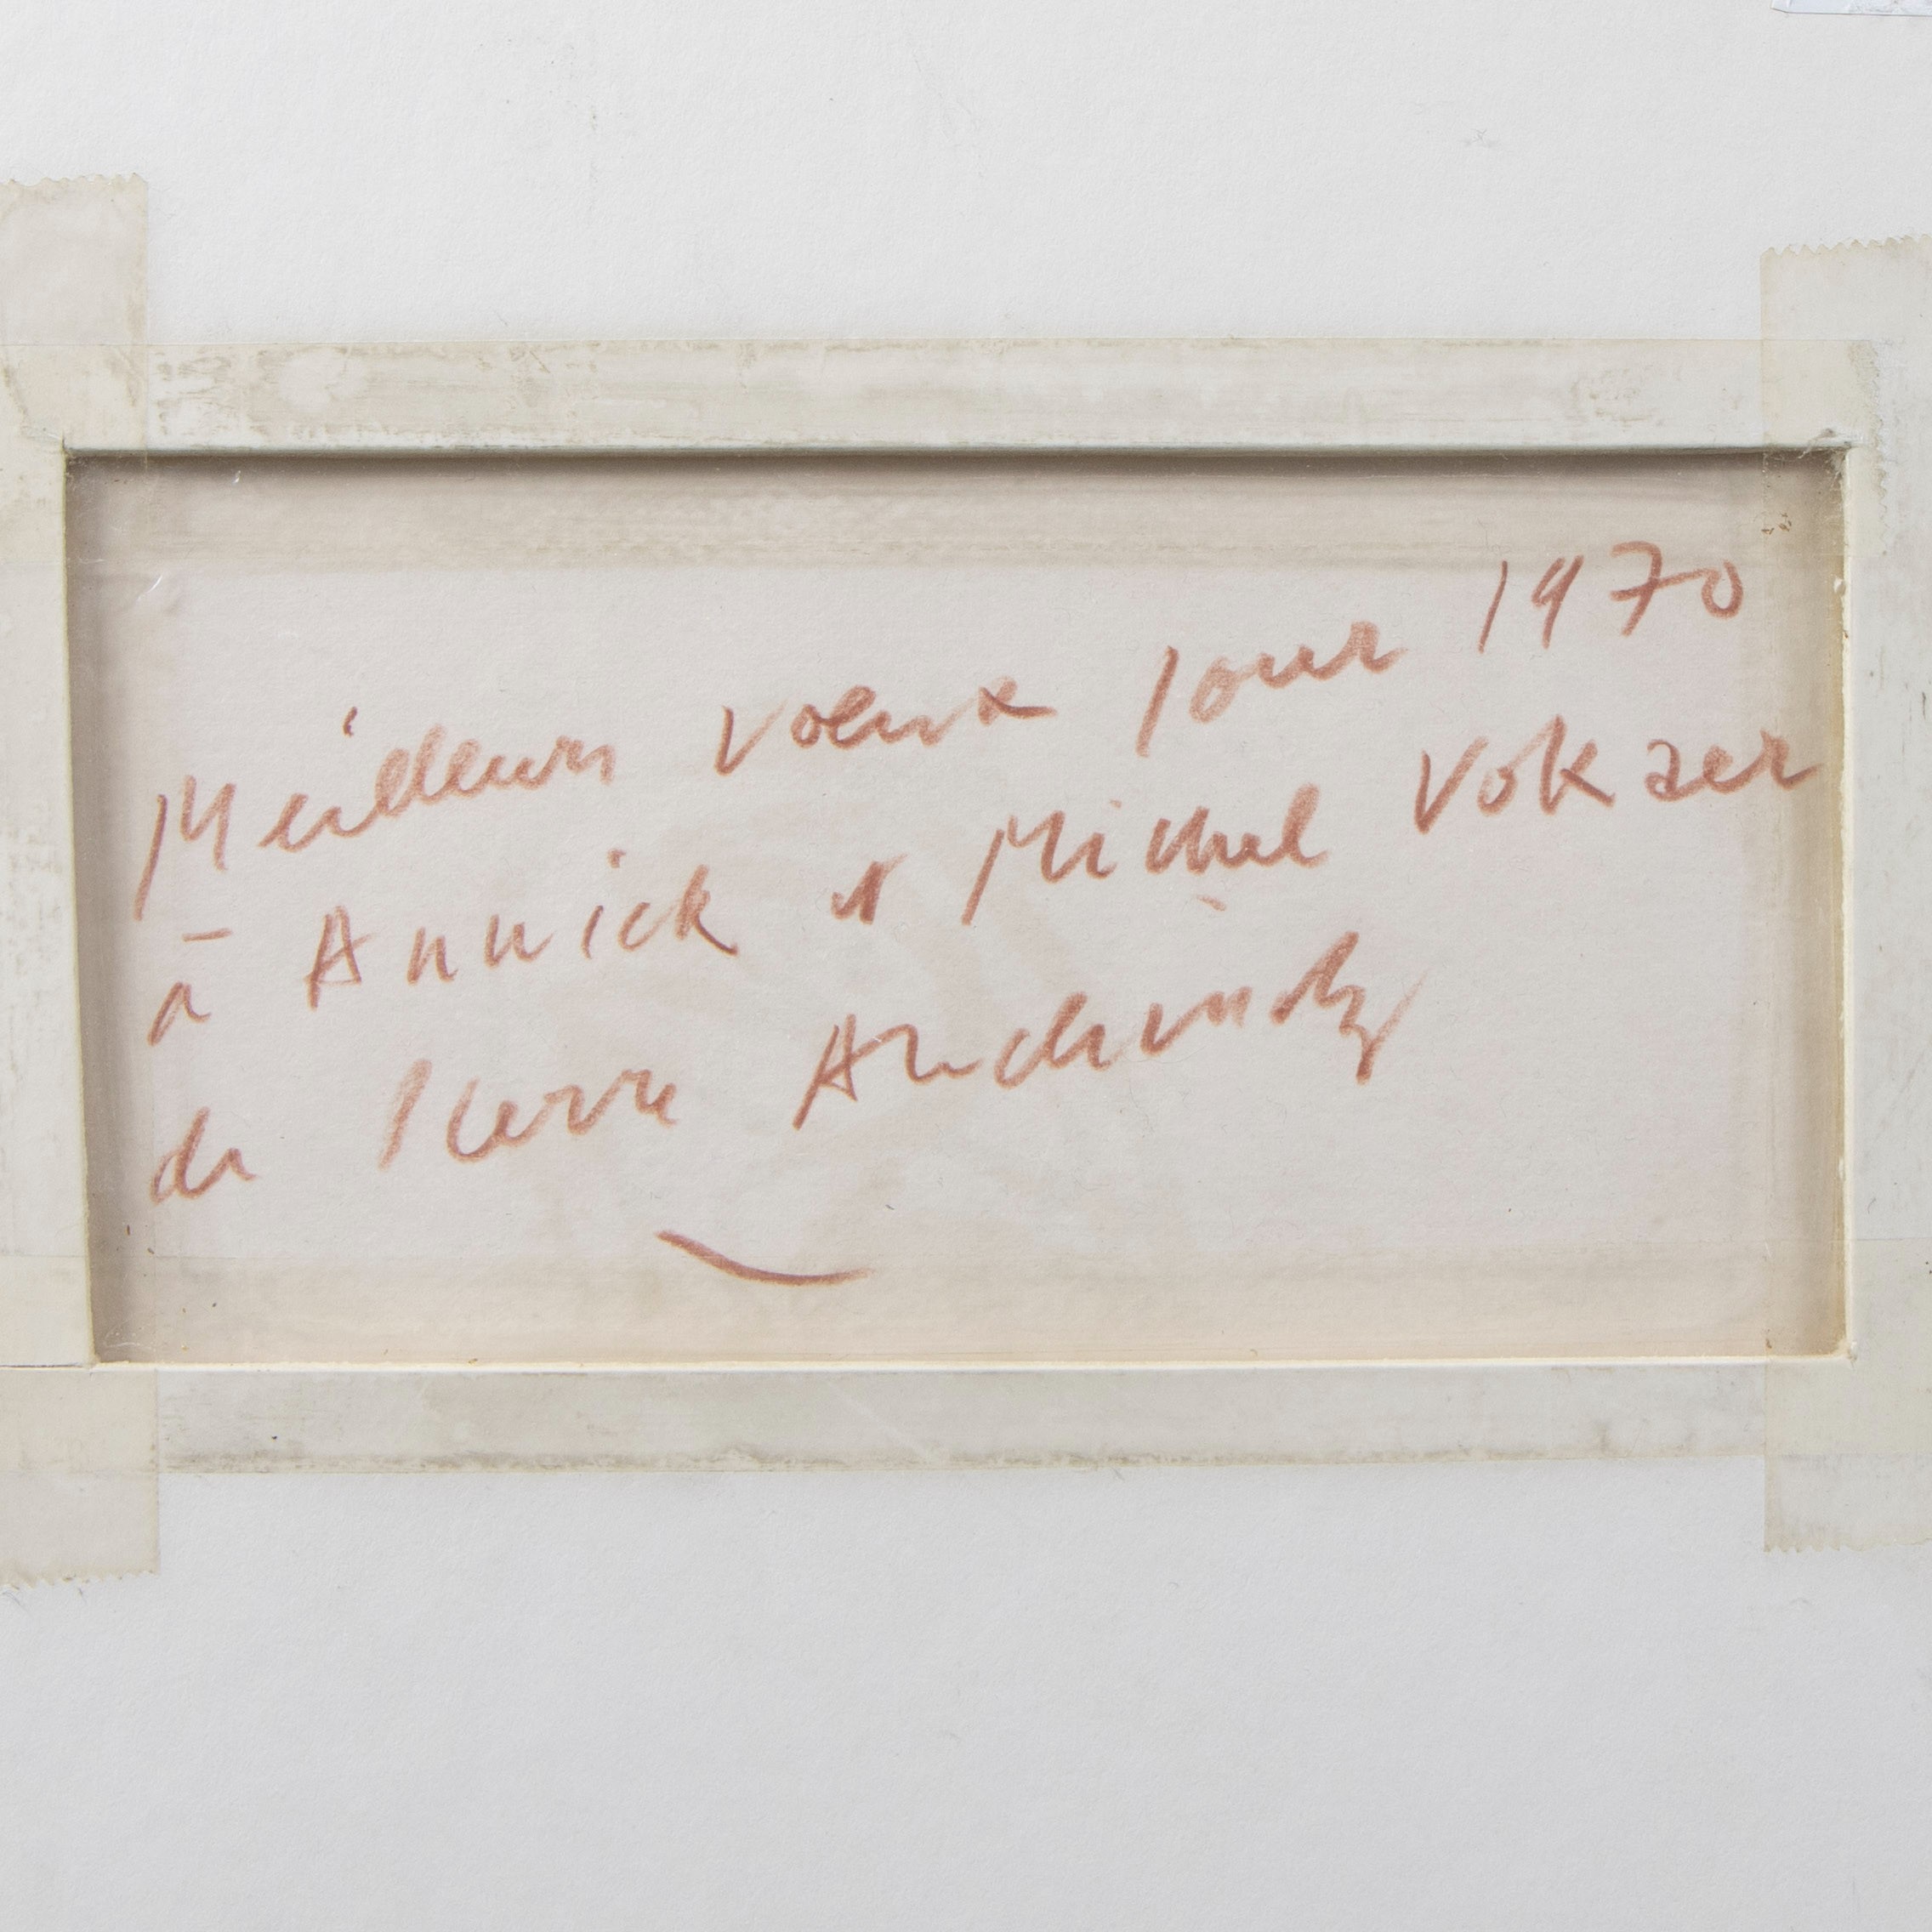 Meilleurs voeux pour 1970
à Annick et Michel Vokaer
de Pierre Alechinsky